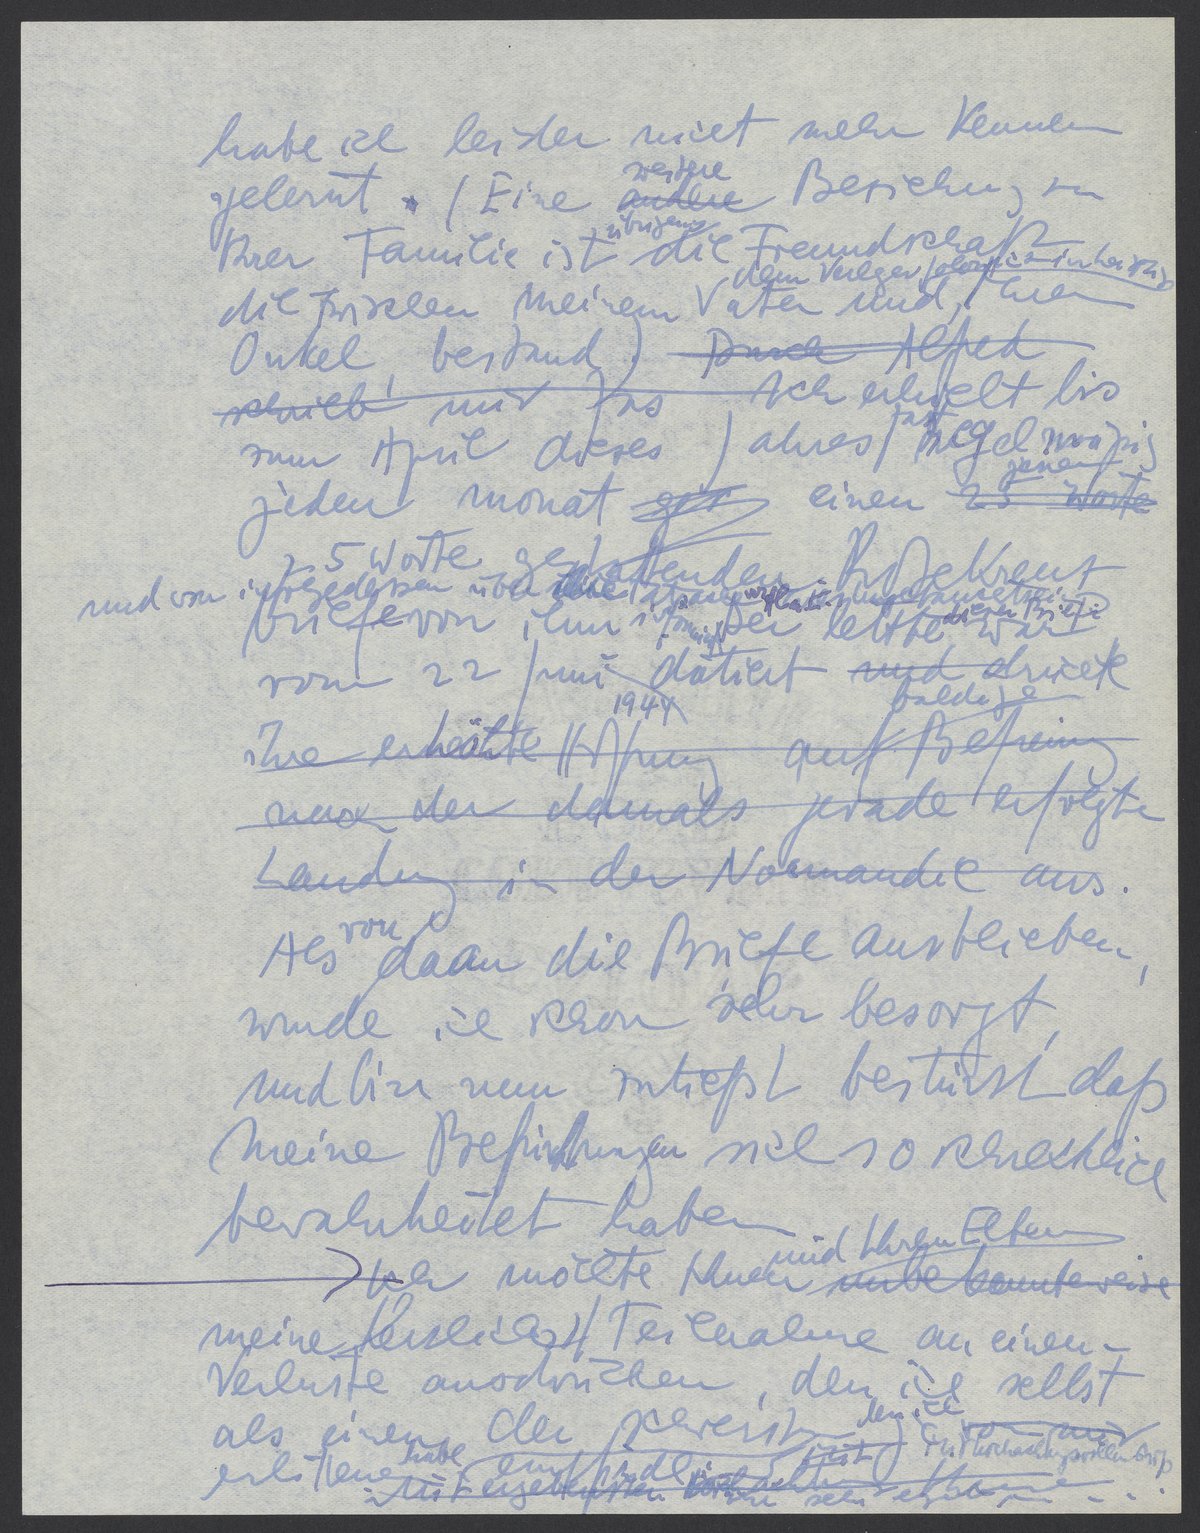 habe ich leider nicht mehr kennen
gelernt. (Eine weitere andere Beziehung zu
Ihrer Familie ist übrigens die Freundschaft
die zwischen meinem Vater und dem Verleger Ihrem
Onkel bestand) Durch Alfred
schrieb mir Ich erhielt bis
zum April dieses Jahres fast regelmäßig
jeden Monat einen 25 Worte
25 Worte Rotekreuz
und von infolgedessen über
briefe von ihm Der letzte dieser Briefe war
vom 22 Juni 1944 datiert und drückte
ihre erhöhte Hoffnung auf baldige Befreiung
nach der damals gerade erfolgten
Landung in der Normandie aus.
Als von da an die Briefe ausblieben,
wurde ich schon sehr besorgt,
und bin nun zutiefst bestürzt daß
meine Befürchtungen sich so schrecklich
bewahrheitet haben
Ich möchte Ihnen und Ihren Eltern unbekannterweise
meine herzliche Teilnahme an einem
Verluste ausdrücken, den ich selbst
als einen der schwersten den ich
erlitten habe empfinde